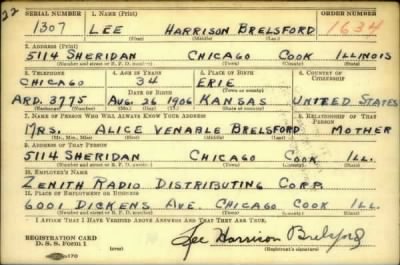 22
SERIAL NUMBER 1. NAME (Print) ORDER NUMBER
1307 LEE HARRISON BRELSFORD 1634
(First) (Middle) (Last)
2. ADDRESS (Print)
5114 SHERIDAN CHICAGO COOK ILLINOIS
(Number and street or R. F. D. number) (Town) (County) (State)
3. TELEPHONE 4. AGE IN YEARS 5. PLACE OF BIRTH 6. COUNTRY OF CITIZENSHIP
CHICAGO 34 ERIE
DATE OF BIRTH (Town or county)
ARD. 3775 AUG. 26 1906 KANSAS UNITED STATES
(Exchange) (Number) (Mo.) (Day) (Yr.) (State or country)
7. NAME OF PERSON WHO WILL ALWAYS KNOW YOUR ADDRESS 8. RELATIONSHIP OF THAT PERSON
MRS. ALICE VENABLE BRELSFORD MOTHER
(Mr., Mrs., Miss) (First) (Middle) (Last)
9. ADDRESS OF THAT PERSON
5114 SHERIDAN CHICAGO COOK ILL.
(Number and street or R. F. D. number) (Town) (County) (State)
10. EMPLOYER'S NAME
ZENITH RADIO DISTRIBUTING CORP.
11. PLACE OF EMPLOYMENT OR BUSINESS
6001 DICKENS AVE. CHICAGO COOK ILL.
(Number and street or R. F. D. number) (Town) (County) (State)
I AFFIRM THAT I HAVE VERIFIED ABOVE ANSWERS AND THAT THEY ARE TRUE.
REGISTRATION CARD
D. S. S. Form 1
Lee Harrison Brelsford
(Registrant's signature)